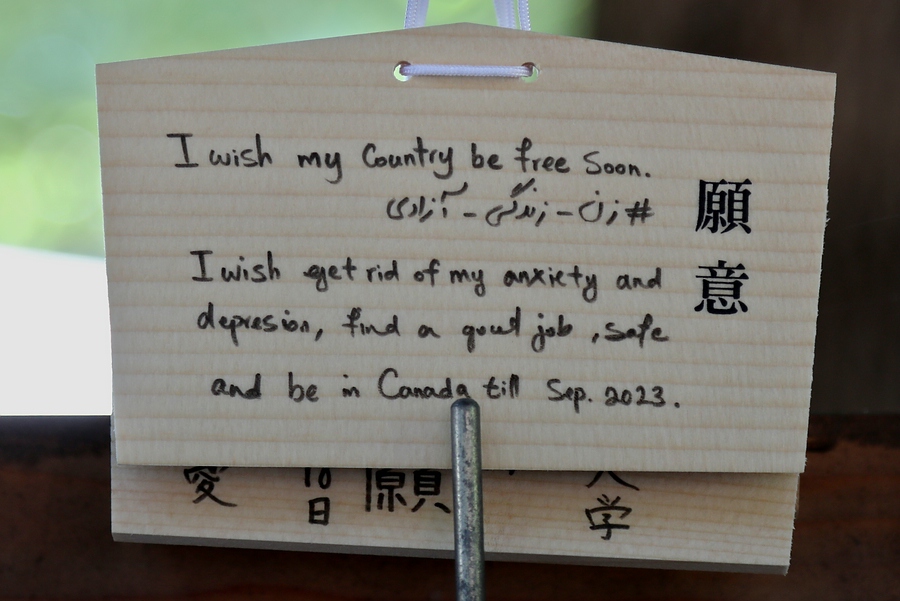 I wish my Country be free Soon.
#زن-زندگی-آزادی
I wish get rid of my anxiety and
depresion, find a good job, safe
and be in Canada till Sep. 2023.
願意
愛
10日
願
学